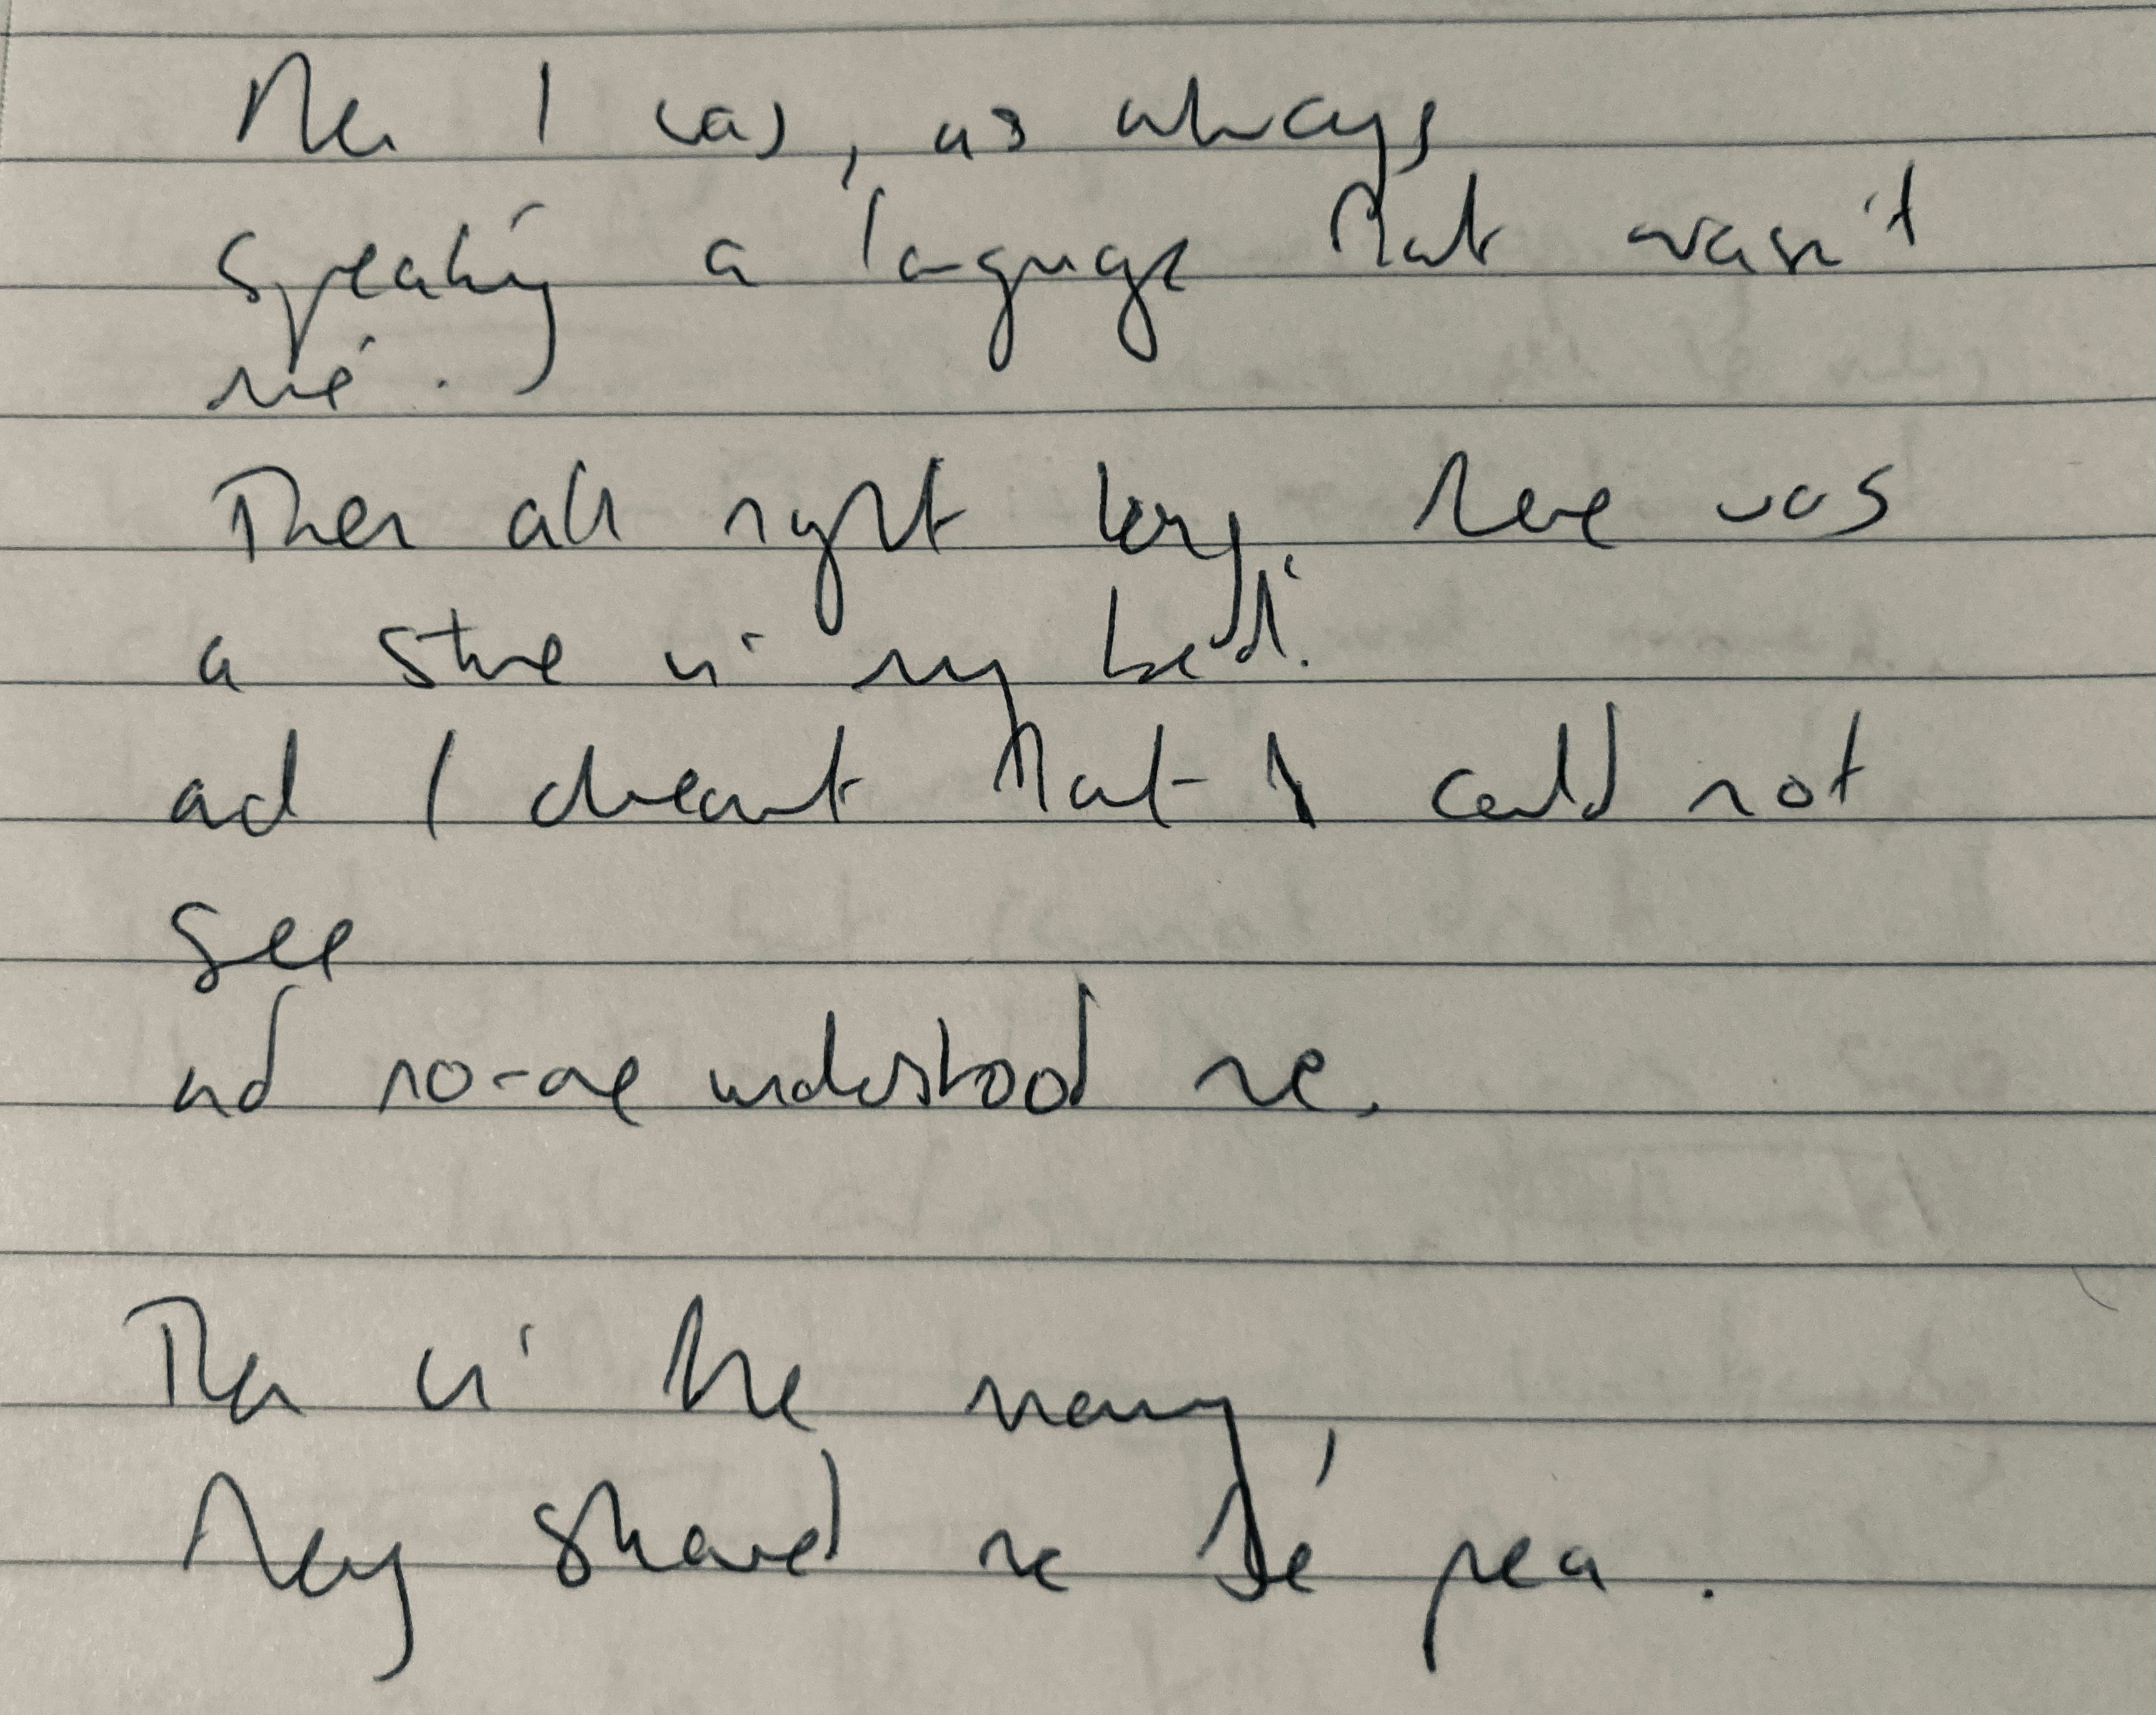 Then I was, as always
speaking a language that wasn't
mine.
Then all night long, there was
a stone in my bed.
and I dreamt that I could not
see
and no-one understood me.
Then in the morning,
they showed me the pea.